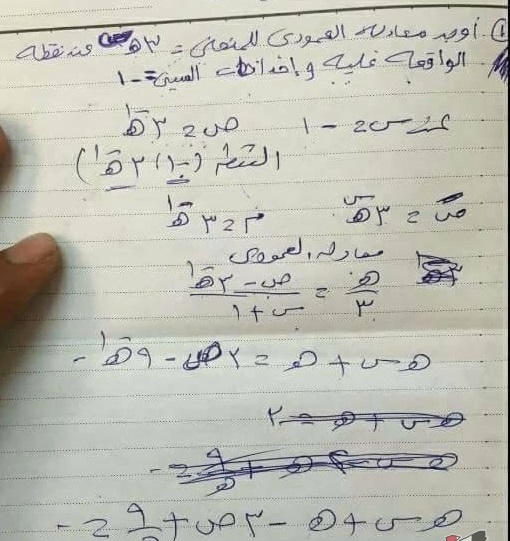 ١) أوجد معادلة العمودى للمنحنى = ٣هـ عند نقطة
الواقعة عليه و إحداثها السينى = -١
عند س = -١ ص = ٣هـ^-١
النقطة (-١، ٣هـ^-١)
صَ = ٣هـ^س م = ٣هـ^-١
معادلة العمودى
-هـ/٣ = (ص - ٣هـ^-١)/(س + ١)
-هـ س + هـ = ٣ص - ٩هـ^-١
هـ س + هـ = ٢
-هـ س + هـ - ٣ص + ٩/هـ =